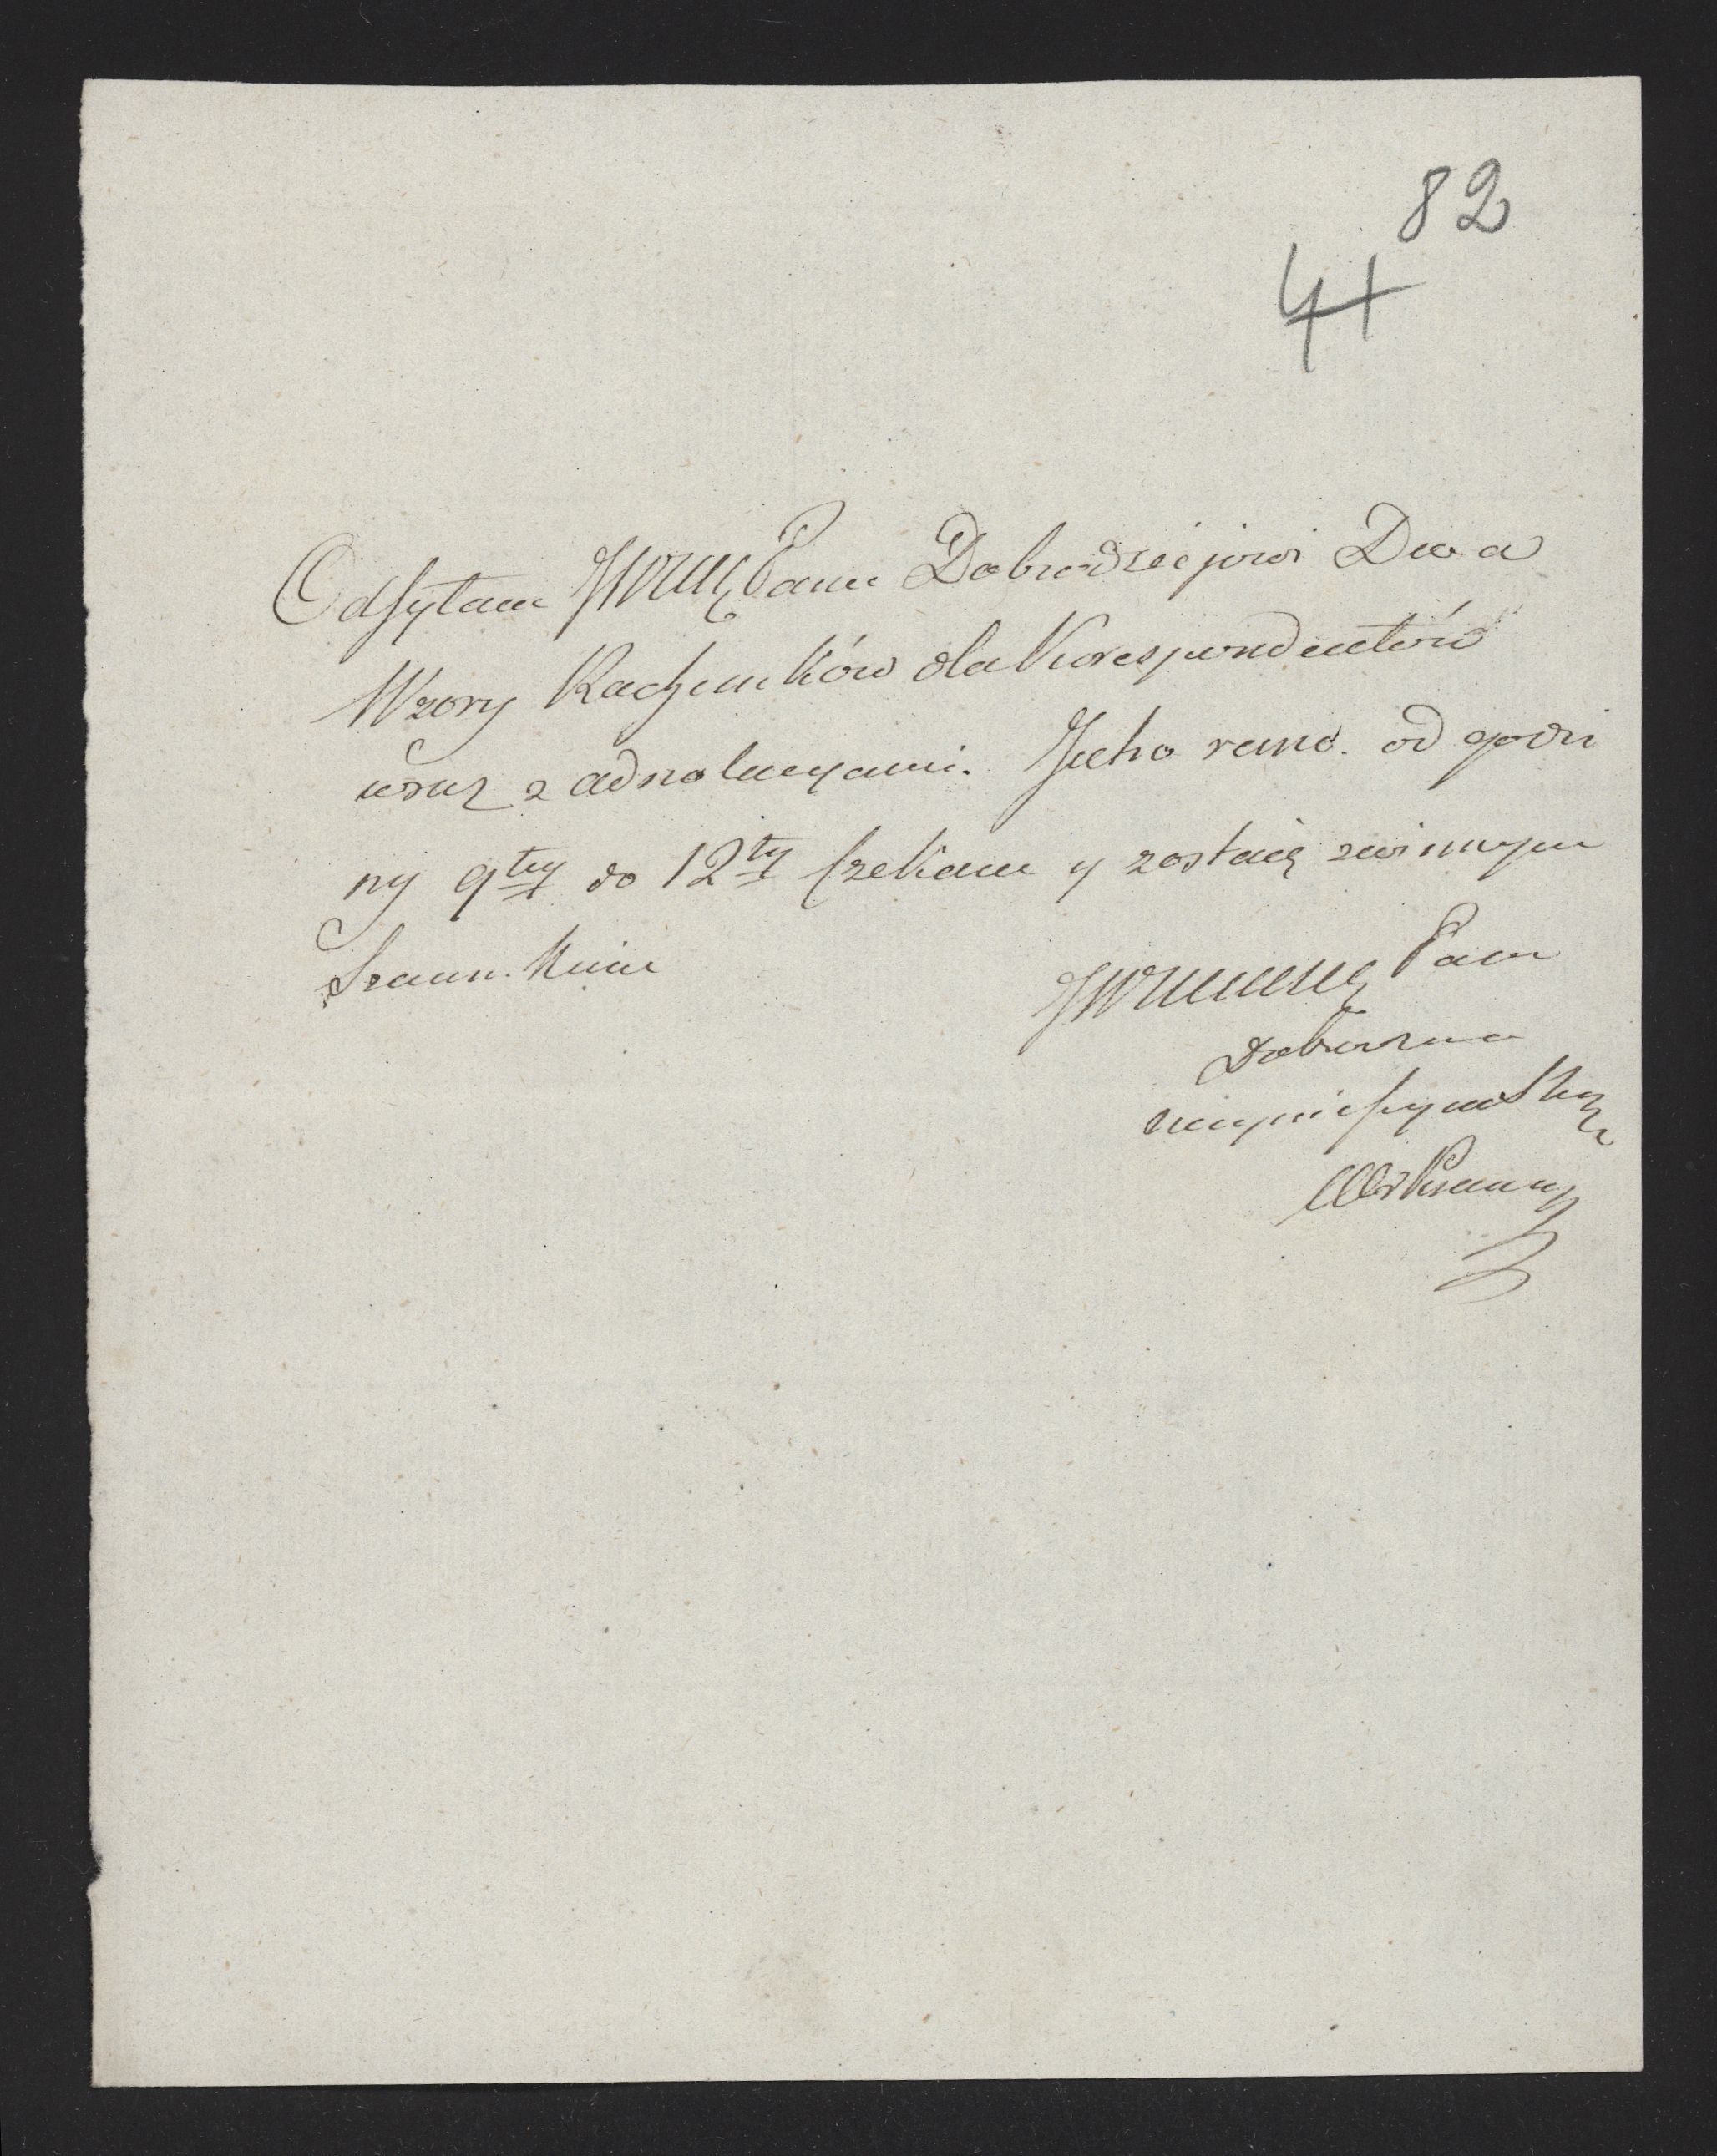 82
41
Odsyłam JWMC Panu Dobrodziejowi Dwa
Wzory Rachunków dla Korespondentów
wraz z adnotacyami. Jutro rano. od godzi
ny 9tey do 12tey czekam y zostaię z winnym
Szacunkiem
Pana
Dobrodzieja
nayniższym sługą